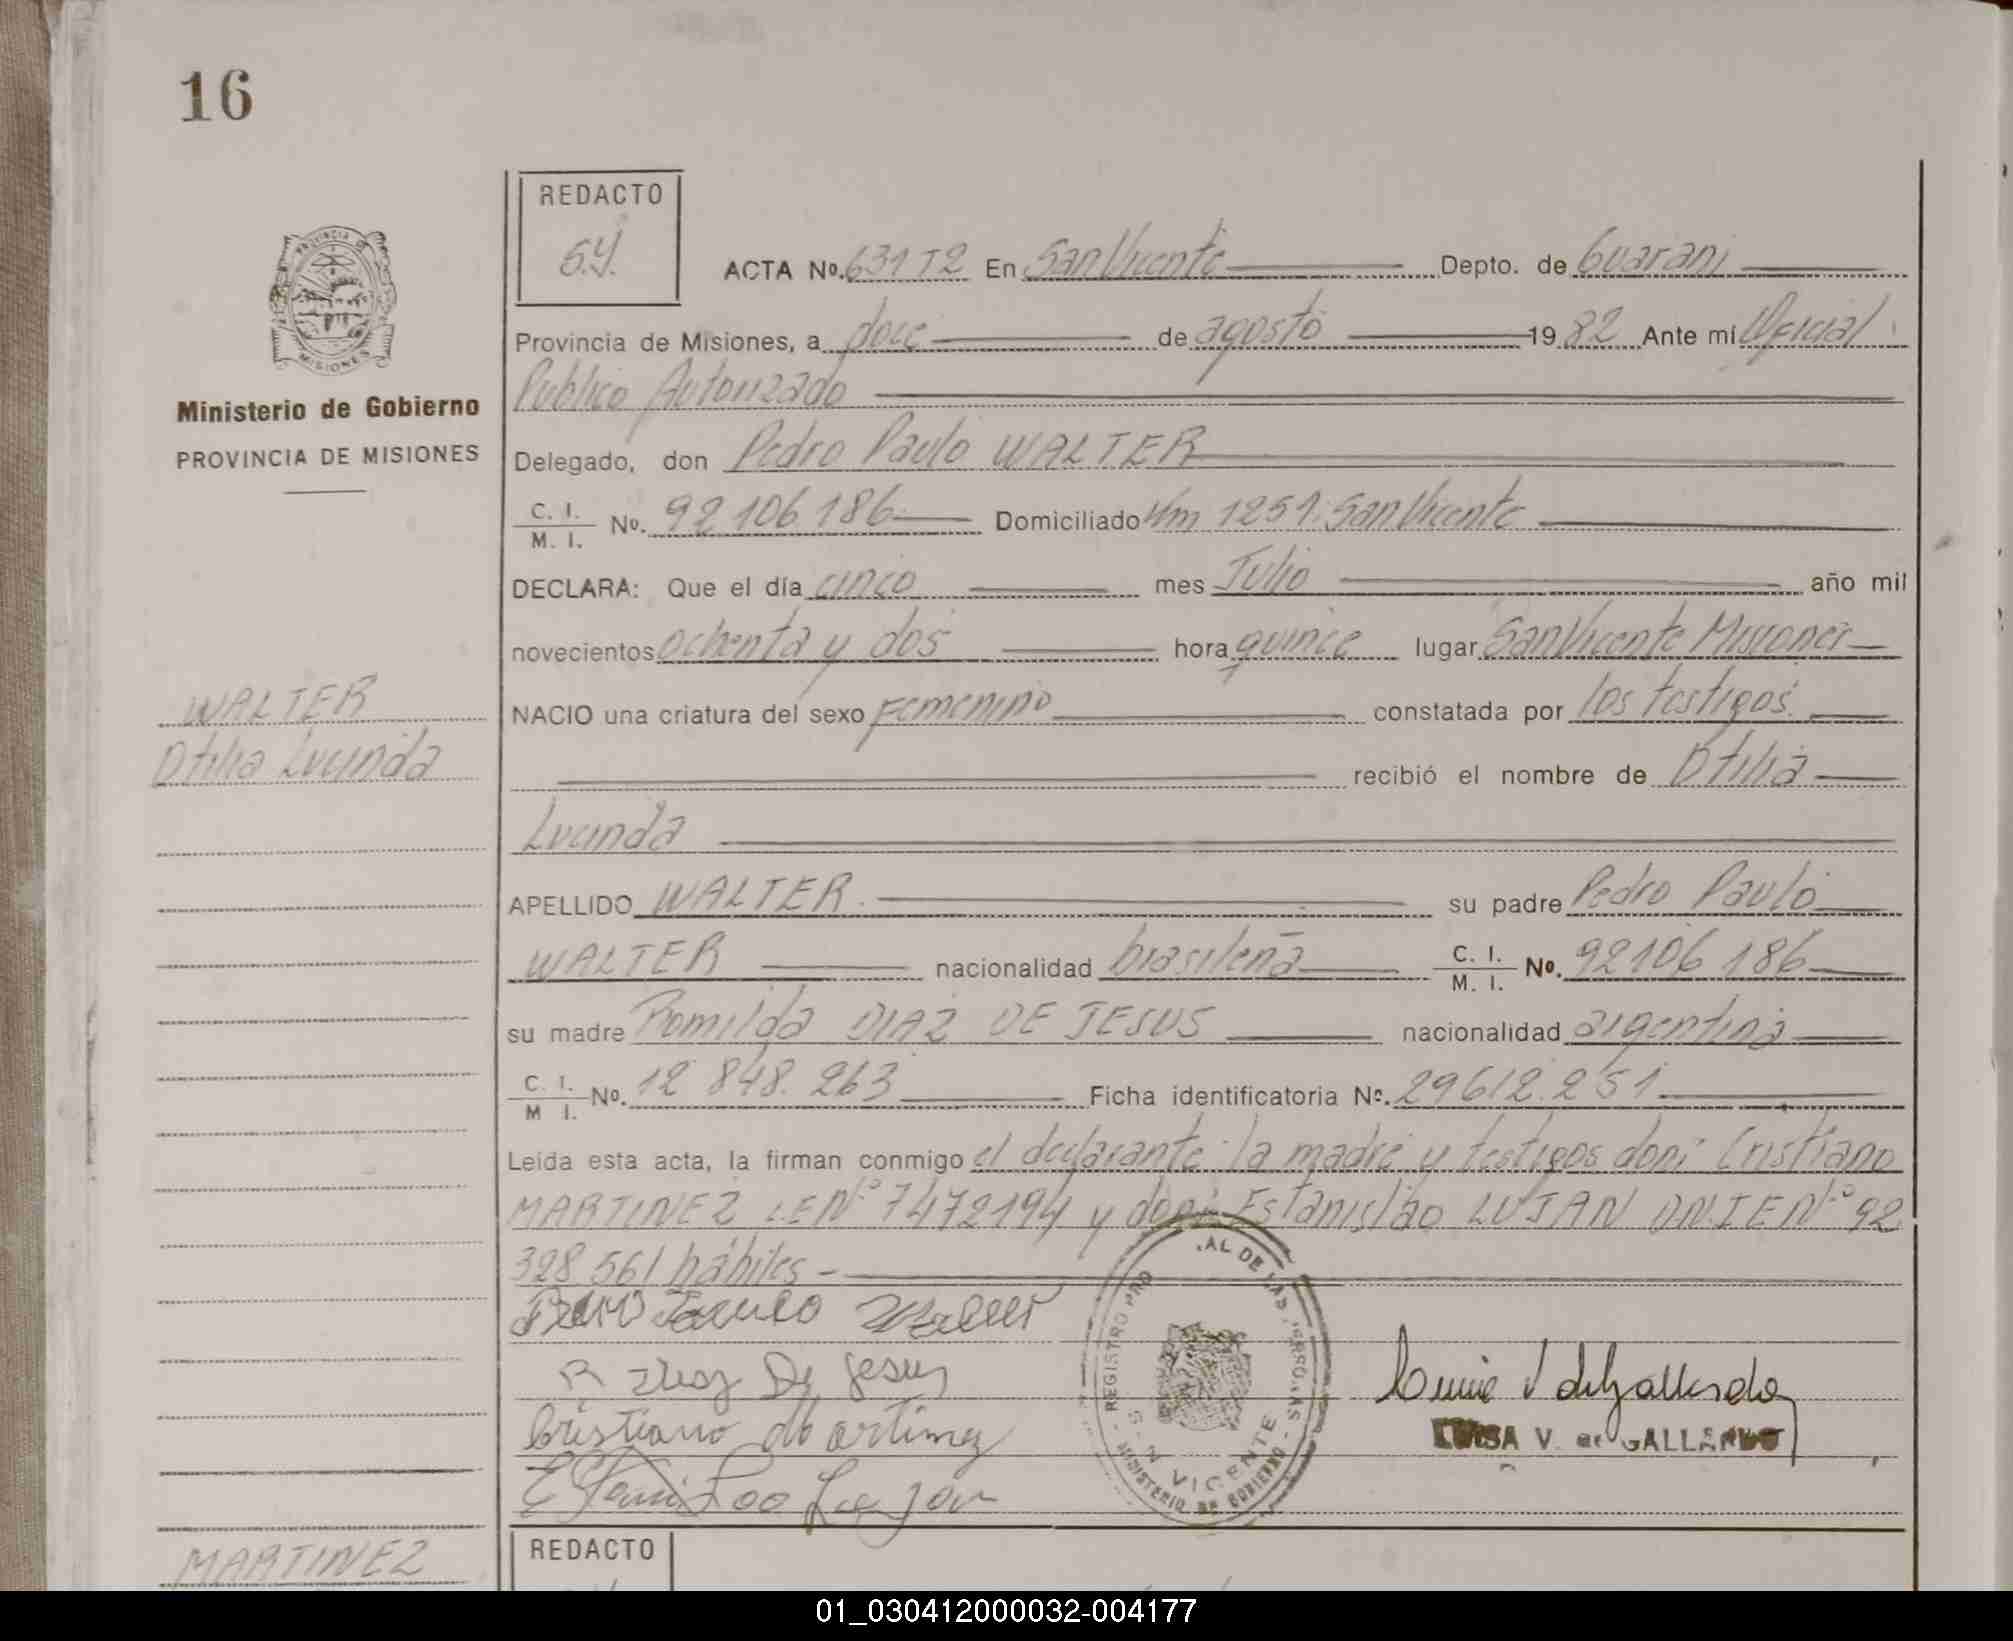 16
REDACTO
S.Y.
ACTA No. 631 T2 En San Vicente Depto. de Guarani
Provincia de Misiones, a doce de agosto 1982 Ante mi Oficial
Publico Autorizado
Delegado, don Pedro Paulo WALTER
C. I. / M. I. No. 92 106 186 Domiciliado Km 1251. San Vicente
DECLARA: Que el día cinco mes Julio año mil
novecientos ochenta y dos hora quince lugar San Vicente Misiones
NACIO una criatura del sexo Femenino constatada por los testigos.
recibió el nombre de Otilia
Lucinda
APELLIDO WALTER. su padre Pedro Paulo
WALTER nacionalidad brasileña C. I. / M. I. No. 92106 186
su madre Romilda DIAZ DE JESUS nacionalidad argentina
C. I. / M I. No. 12 848. 263 Ficha identificatoria No. 29612.251
Leída esta acta, la firman conmigo el declarante la madre y testigos don: Cristiano
MARTINEZ L.E Nº 7472194 y don: Estanislao LUJAN D.N.I E Nº 92
328 561 hábiles -
Pedro Paulo Walter
R Diaz De Jesus
Cristiano Martinez
Estanislao Lujan
LUISA V. de GALLARDO
REGISTRO PRO AL DE LAS PERSONAS
S N VICENTE
MINISTERIO DE GOBIERNO
PROVINCIA DE
MISIONES
Ministerio de Gobierno
PROVINCIA DE MISIONES
WALTER
Otilia Lucinda
MARTINEZ
REDACTO
01_030412000032-004177